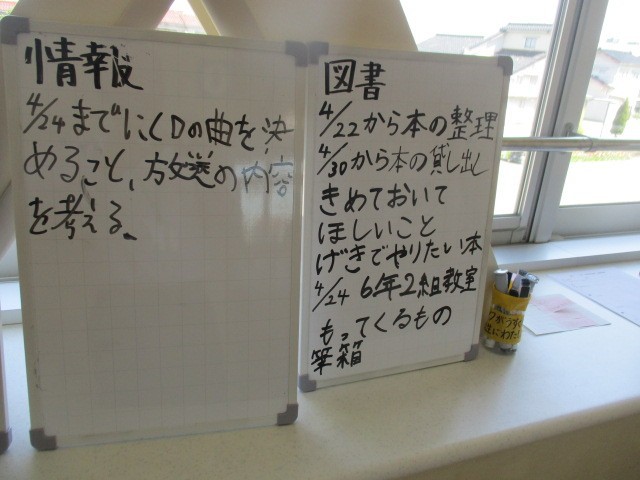 情報
4/24までにCDの曲を決
めること、放送の内容
を考える。
図書
4/22から本の整理
4/30から本の貸し出し
きめておいて
ほしいこと
げきでやりたい本
4/24 6年2組教室
もってくるもの
筆箱